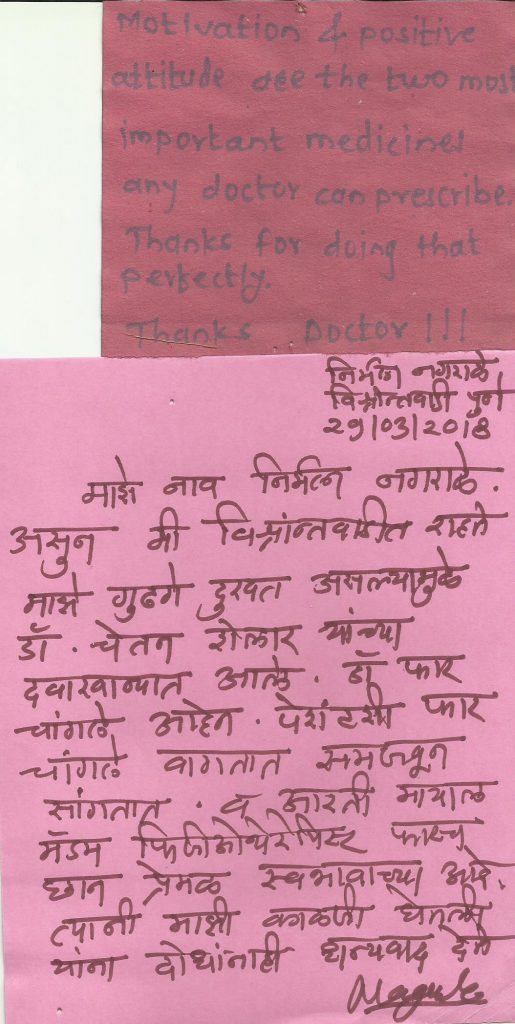 Motivation & positive
attitude are the two most
important medicines
any doctor can prescribe.
Thanks for doing that
perfectly.
Thanks Doctor !!!
निर्मला नगराळे
विश्रांन्तवाडी पुने
29/03/2018
माझे नाव निर्मला नगराळे .
असुन मी विश्रांन्तवाडीत राहते
माझे गुढगे दुखत असल्यामुळे
डॉ . चेतन शेलार यांच्या
दवाखान्यात आले . डॉ फार
चांगले आहेन . पेशंटशी फार
चांगले वागतात समजवून
सांगतात . व आरती मायाल
मॅडम फिजीओथेरेपिस्ट फारच
छान प्रेमळ स्वभावाच्या आहे.
त्यानी माझी काळजी घेतली
यांना दोघांनाही धन्यवाद देते